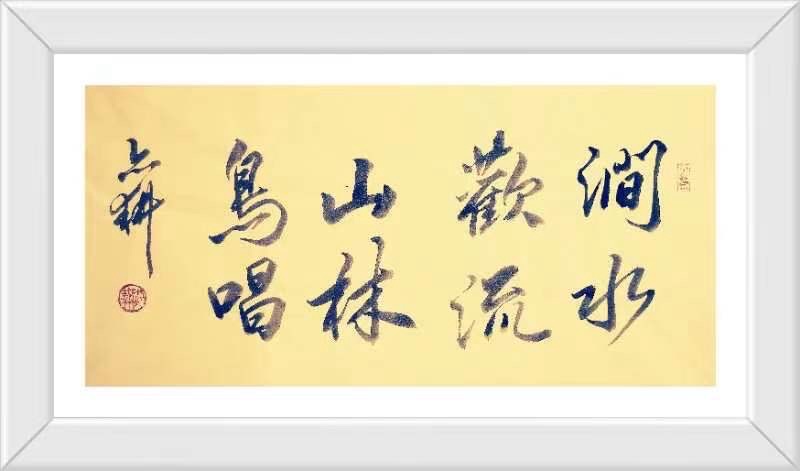 澗水
歡流
山林
鳥唱